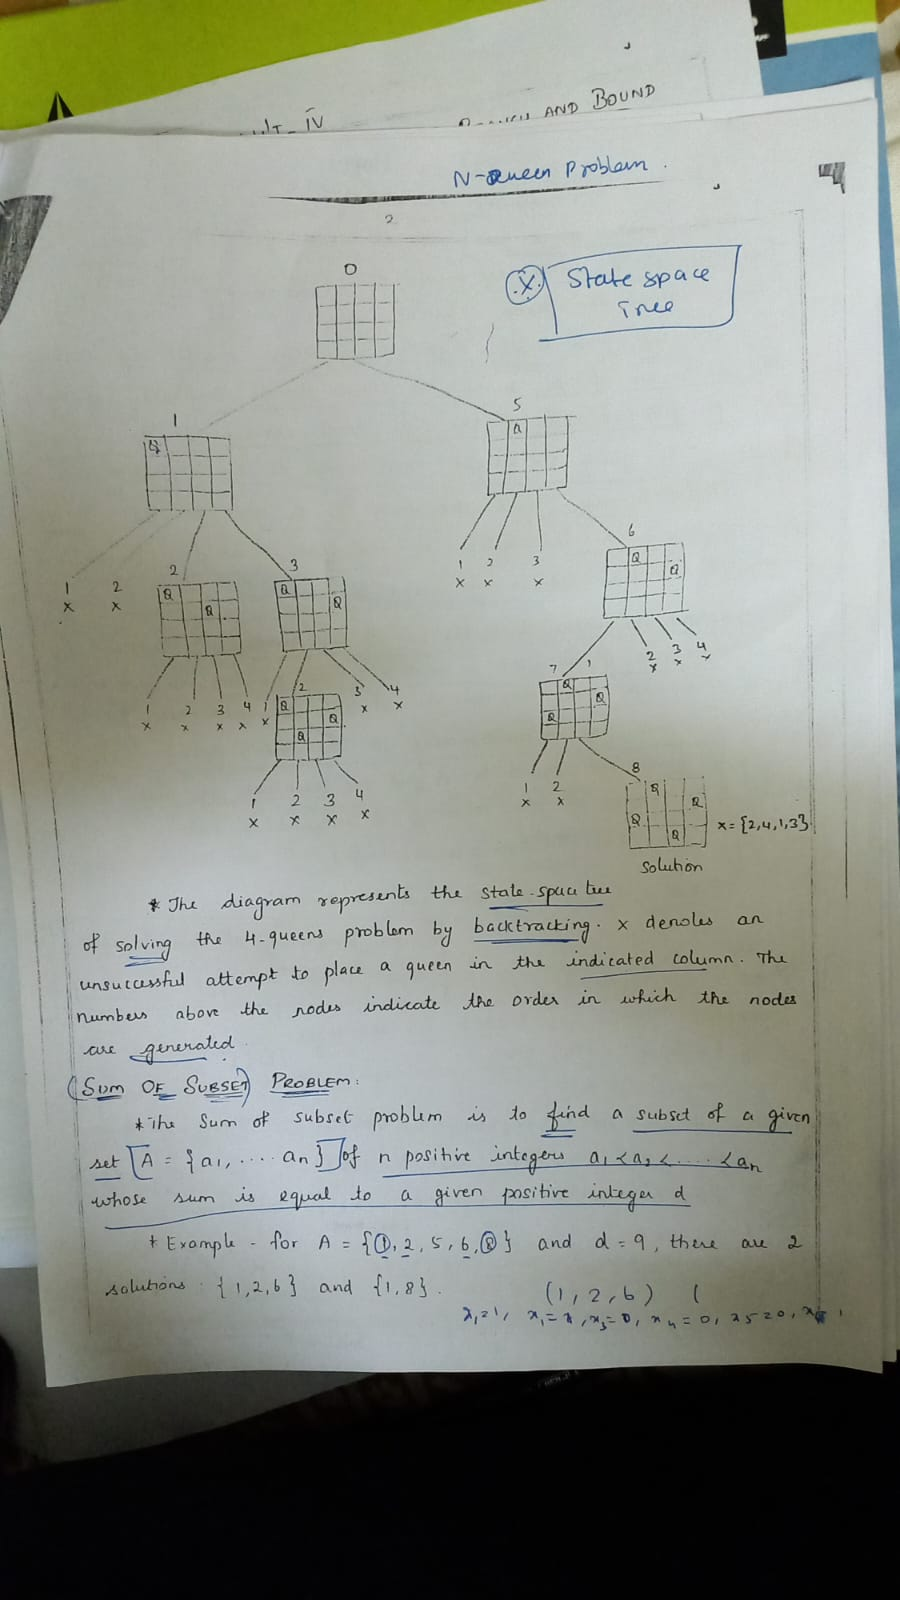 IV
AND BOUND
N-Queen Problem.
2
0
X
State space
Tree
1
5
Q
Q
6
2
3
1 2 3
x x x
Q
Q
1 2
x x
Q
Q
Q
Q
2 3 4
x x
7 1
1 2 3 4 1
x x x x x
2 3 4
x x
Q
Q
Q
Q
Q
Q
8
1 2
x x
1 2 3 4
x x x x
Q
Q
Q
Q
x = {2,4,1,3}
Solution
* The diagram represents the state-space tree
of solving the 4-queens problem by backtracking. x denotes an
unsuccessful attempt to place a queen in the indicated column. The
numbers above the nodes indicate the order in which the nodes
are generated.
SUM OF SUBSET PROBLEM:
* The Sum of subset problem is to find a subset of a given
set A = {a1, .... an} of n positive integers a1 < a2 < .... < an
whose sum is equal to a given positive integer d
* Example - for A = {1, 2, 5, 6, 8} and d = 9, there are 2
solutions : {1,2,6} and {1,8}.
(1, 2, 6) (
x1=1, x3=0, x4=0, x5=0,